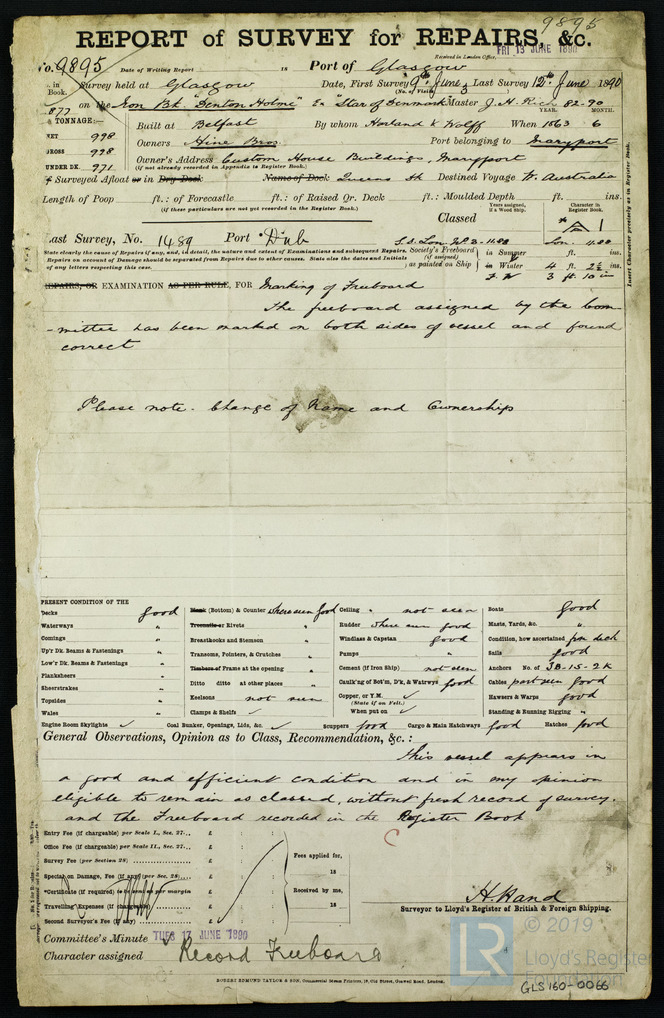 9895
REPORT of SURVEY for REPAIRS, &c.
FRI 13 JUNE 1890
Received in London Office,
No. 9895 Date of Writing Report is Port of Glasgow
in Book. Survey held at Glasgow Date, First Survey 9th June, Last Survey 12th June 1890
(No. of Visits)
877 on the Iron Bk "Denton Holme" Ex "Star of Denmark" Master J. H. Rich 82-90
YEAR. MONTH.
TONNAGE:— Built at Belfast By whom Harland & Wolff When 1863 6
NET 998
GROSS 998 Owners Hine Bros. Port belonging to Maryport
UNDER DK. 971 Owner's Address Custom House Buildings, Maryport
(if not already recorded in Appendix to Register Book.)
If Surveyed Afloat or in Dry Dock Name of Dock Queens Dk Destined Voyage W. Australia
Length of Poop ft.: of Forecastle ft.: of Raised Qr. Deck ft.: Moulded Depth ft. ins.
(if these particulars are not yet recorded in the Register Book.)
Years assigned, if a Wood Ship.
Character in Register Book.
Classed A 1
Last Survey, No. 1489 Port Dub S.S. Lon. No 3-11.88 Lon. 11.88
State clearly the cause of Repairs if any, and, in detail, the nature and extent of Examinations and subsequent Repairs.
Repairs on account of Damage should be separated from Repairs due to other causes. State also the dates and Initials
of any letters respecting this case.
Society's Freeboard (if assigned) as painted on Ship
in Summer ft. ins.
in Winter 4 ft. 2½ ins.
F.W 3 ft. 10 in
Insert Character precisely as in Register Book.
REPAIRS, OR EXAMINATION AS PER RULE, FOR Marking of Freeboard
The freeboard assigned by the Com-
-mittee has been marked on both sides of vessel and found
correct
Please note. Change of Name and Ownership
PRESENT CONDITION OF THE
Decks good
Waterways "
Comings "
Up'r Dk. Beams & Fastenings "
Low'r Dk. Beams & Fastenings "
Planksheers "
Sheerstrakes "
Topsides "
Wales "
Plank (Bottom) & Counter where seen good
Treenails or Rivets "
Breasthooks and Stemson "
Transoms, Pointers, & Crutches "
Timbers or Frames at the opening "
Ditto ditto at other places "
Keelsons not seen
Clamps & Shelfs ✓
Ceiling not seen
Rudder where seen good
Windlass & Capstan good
Pumps "
Cement (if Iron Ship) not seen
Caulk'ng of Bot'm, D'k, & Watrwys good
Copper, or Y.M. ✓
(State if on Felt.)
When put on ✓
Boats good
Masts, Yards, &c. "
Condition, how ascertained from deck
Sails good
Anchors No. of 3B-1S-2K
Cables part seen good
Hawsers & Warps good
Standing & Running Rigging "
Engine Room Skylights ✓ Coal Bunker, Openings, Lids, &c. ✓ Scuppers good Cargo & Main Hatchways good Hatches good
General Observations, Opinion as to Class, Recommendation, &c.:
This vessel appears in
a good and efficient condition and in my opinion
eligible to remain as classed, without fresh record of survey.
and the Freeboard recorded in the Register Book
Entry Fee (if chargeable) per Scale I., Sec. 27... £ : :
Office Fee (if chargeable) per Scale II., Sec. 27... £ : :
Survey Fee (per Section 28) £ : :
Special on Damage, Fee (if any) (per Sec. 28) £ : :
*Certificate (if required) to be sent as per margin £ : :
Travelling Expenses (if chargeable) £ : :
Second Surveyor's Fee (if any) £ : :
Fees applied for,
18
Received by me,
18
H. Rand
Surveyor to Lloyd's Register of British & Foreign Shipping.
Committee's Minute TUES 17 JUNE 1890
Character assigned Record Freeboard
ROBERT EDMUND TAYLOR & SON, Commercial Steam Printers, 19, Old Street, Goswell Road, London.
© 2019
LR Lloyd's Register Foundation
GLS160-0066